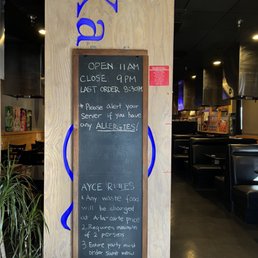 Ka
OPEN 11AM
CLOSE 9PM
LAST ORDER 8:30PM
* Please alert your
server if you have
any ALLERGIES!
AYCE RULES
1. Any waste food
will be charged
at a-la-carte price
2. Requires minimum
of 2 persons
3. Entire party must
order same menu